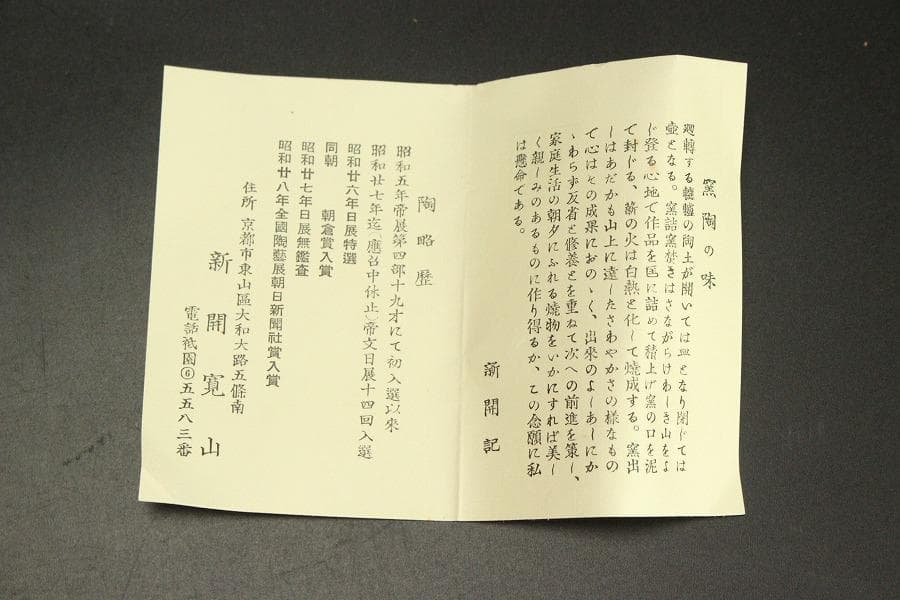 窯陶の味
廻轉する轆轤の陶土が開いては皿となり閉じては
壺となる。窯詰窯焚きはさながらけわしき山をよ
じ登る心地で作品を匡に詰めて積上げ窯の口を泥
て封じる、薪の火は白熱と化して焼成する。窯出
しはあだかも山上に達したさわやかさの様なもの
て心はその成果におのゝく、出來のよしあしにか
ゝわらず反省と修養とを重ねて次への前進を策し、
家庭生活の朝夕にふれる焼物をいかにすれば美し
く親しみのあるものに作り得るか、この念願に私
は懸命である。
新開記
陶略歷
昭和五年帝展第四部十九才にて初入選以來
昭和廿七年迄(應召中休止)帝文日展十四回入選
昭和廿六年日展特選
同朝　朝倉賞入賞
昭和廿七年日展無鑑査
昭和廿八年全國陶藝展朝日新聞社賞入賞
住所 京都市東山區大和大路五條南
新開寛山
電話祗園⑥五五八三番